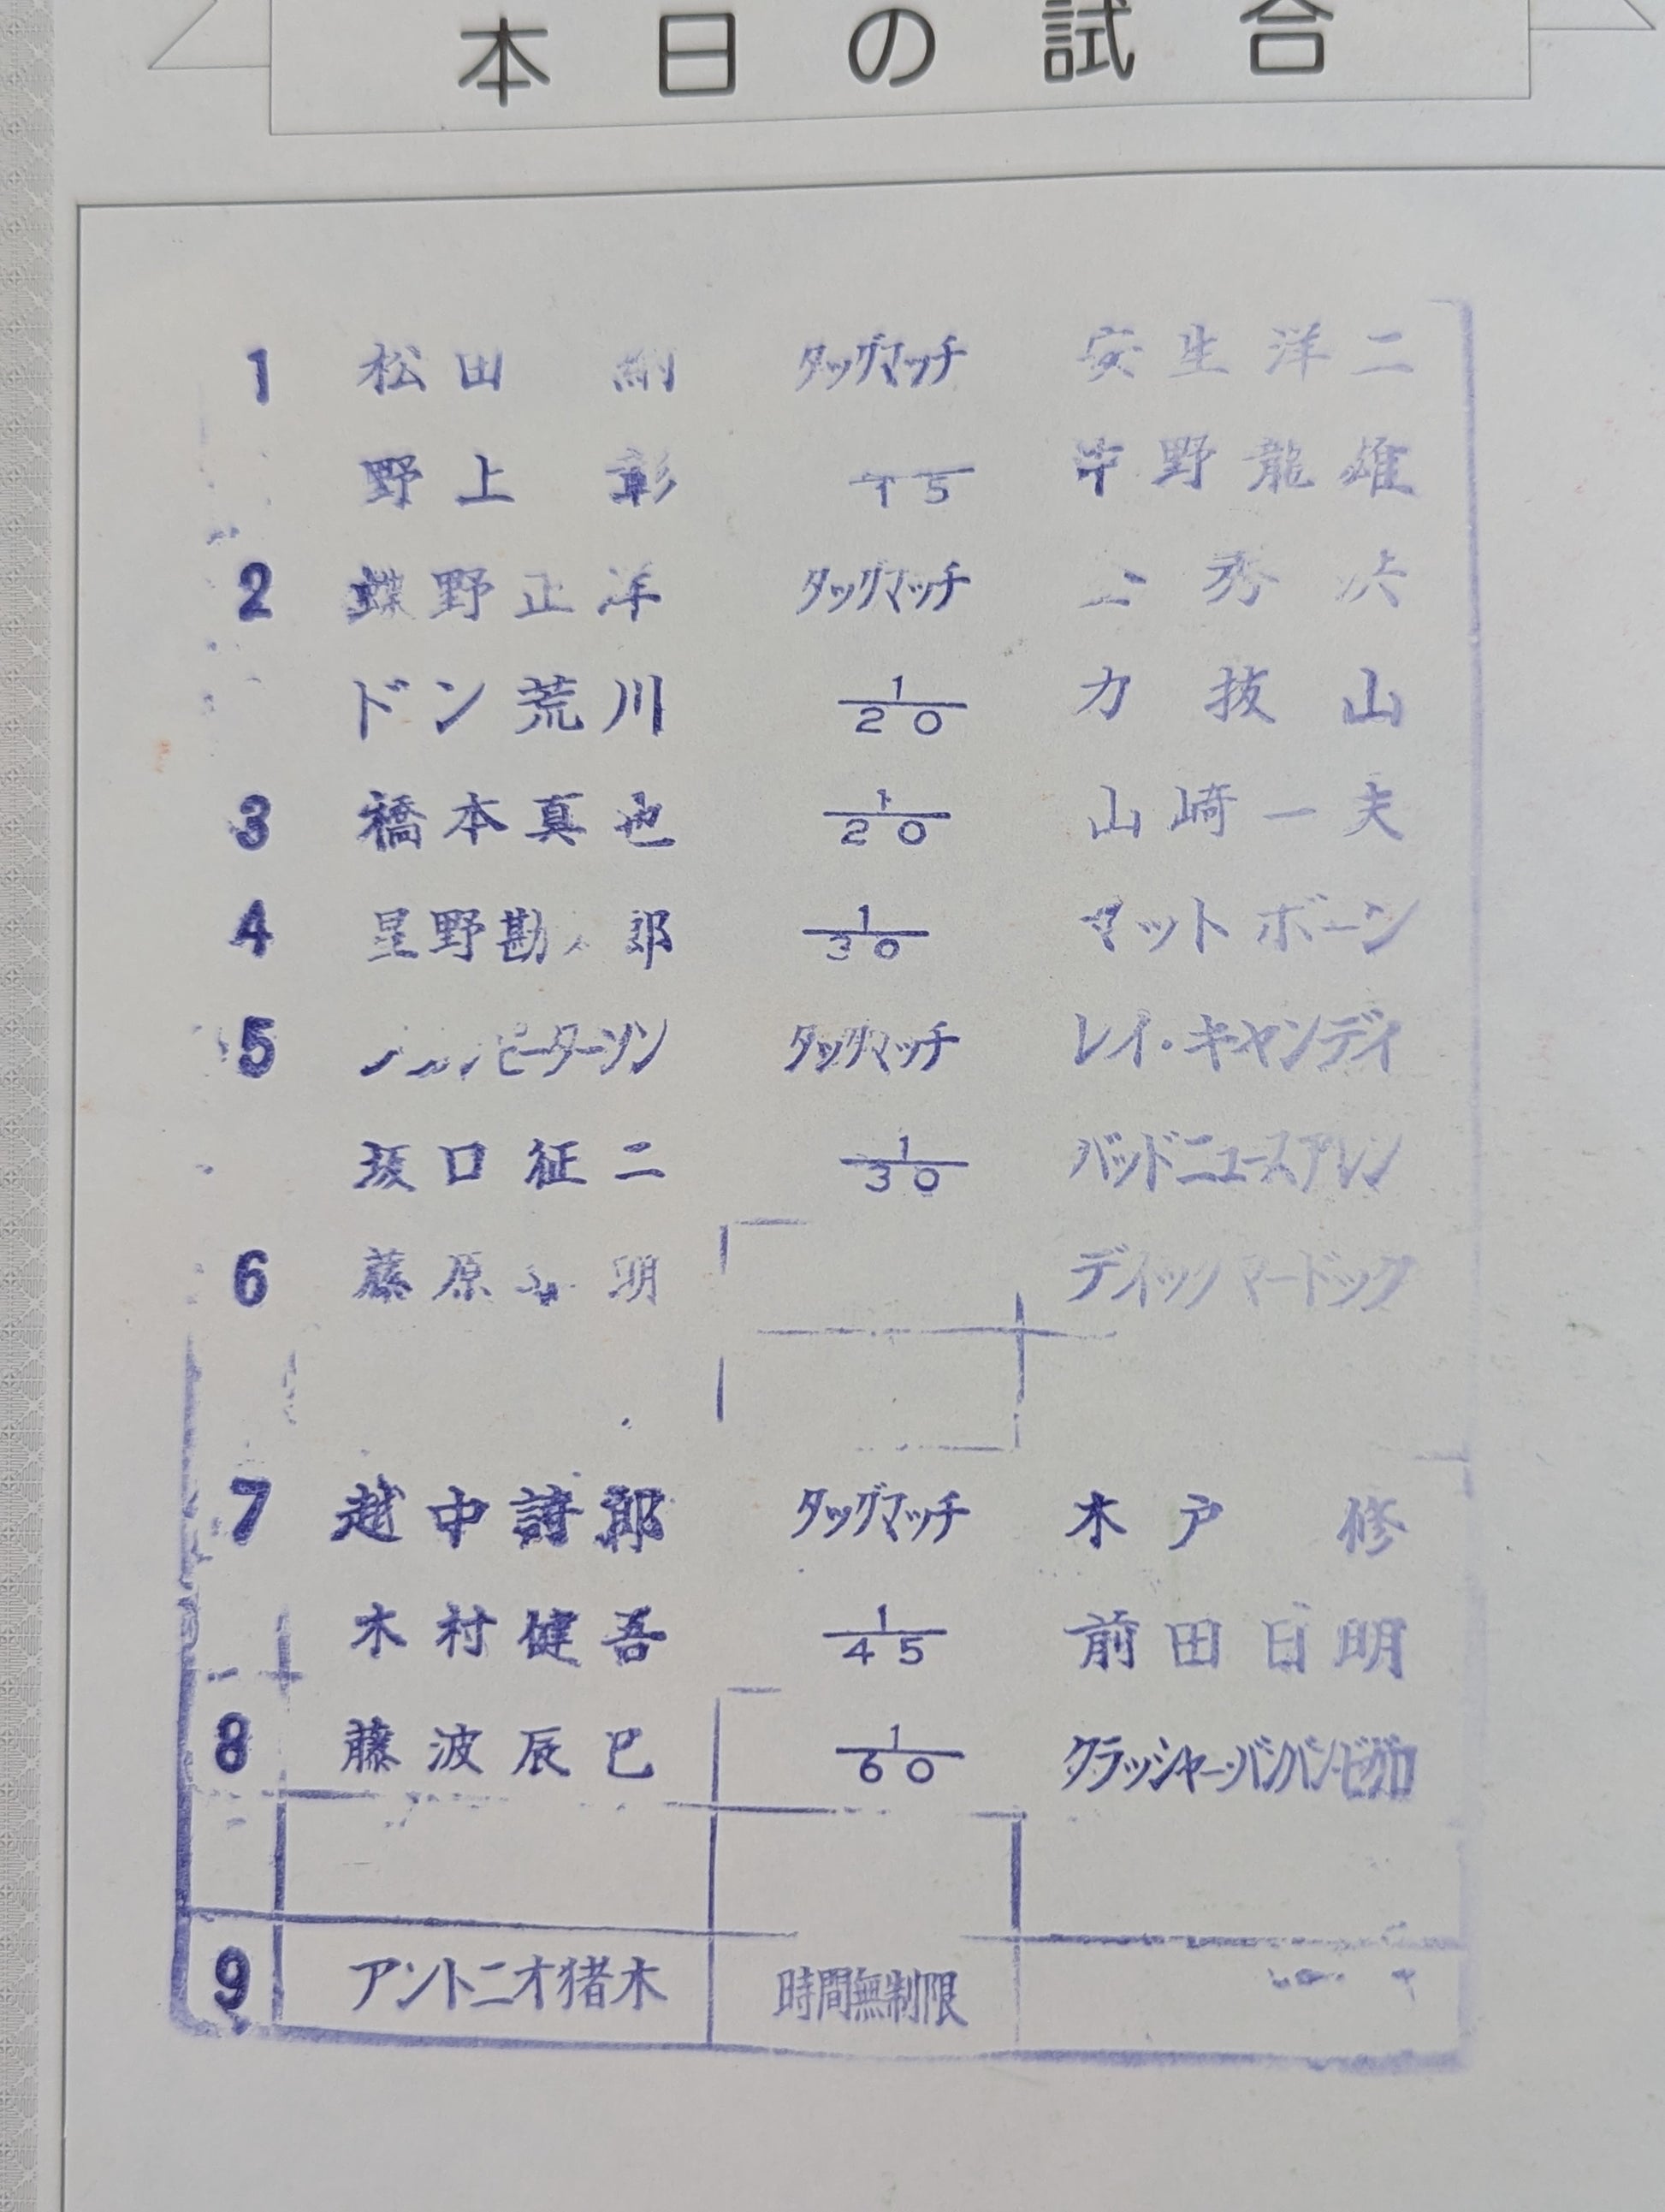 本日の試合
1 松田 納 タッグマッチ 安生洋二
野上 彰 1 15 中野龍雄
2 蝶野正洋 タッグマッチ 上 秀
ドン荒川 1 20 力抜山
3 橋本真也 1 20 山崎一夫
4 星野勘 郎 1 30 マットボーン
5 ピーターソン タッグマッチ レイ・キャンディ
坂口征二 1 30 バッドニュースアレン
6 藤原 明 ディックマードック
7 越中詩郎 タッグマッチ 木戸 修
木村健吾 1 45 前田日明
8 藤波辰巳 1 60 クラッシャー・バンバン・ビガロ
9 アントニオ猪木 時間無制限